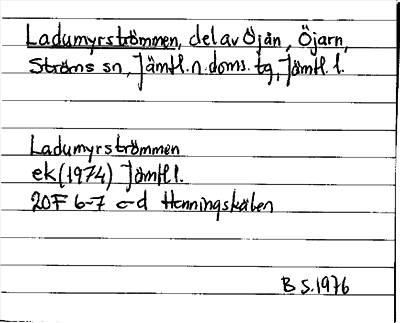 Ladumyrströmmen, del av Öjån, Öjarn,
Ströms sn, Jämtl. n. doms. tg, Jämtl. l.
Ladumyrströmmen
ek (1974) Jämtl l.
20F 6-7 c-d Henningskälen
B S. 1976